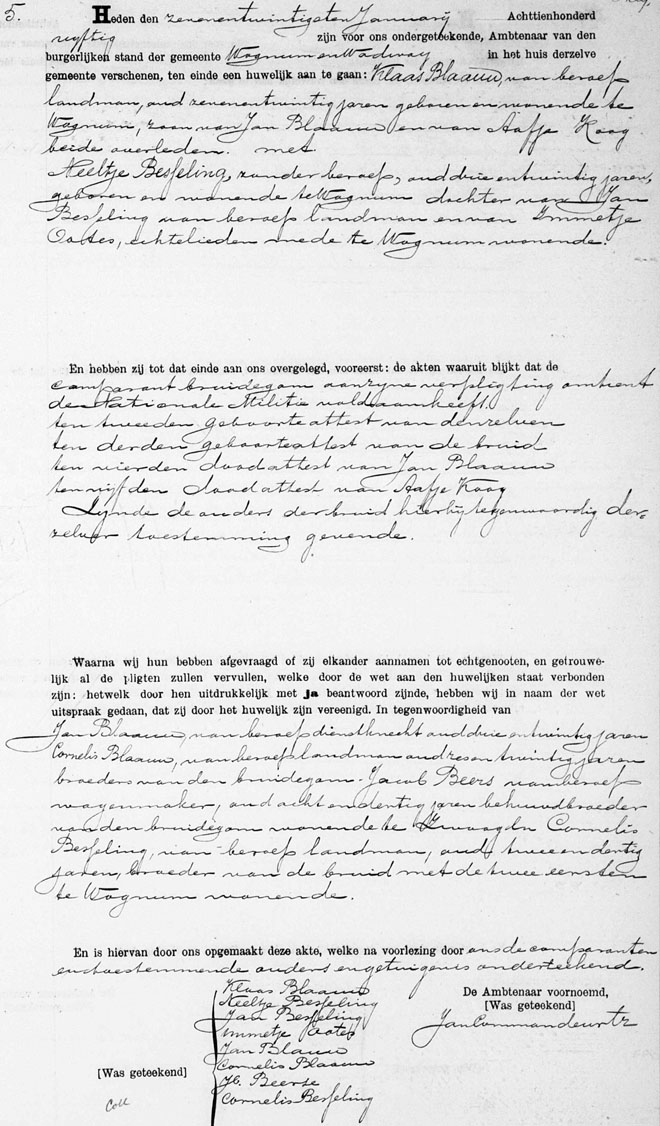 5.
Heden den zevenentwintigsten January Achttienhonderd
vyftig zijn voor ons ondergeteekende, Ambtenaar van den
burgerlijken stand der gemeente Wognum en Wadway in het huis derzelve
gemeente verschenen, ten einde een huwelijk aan te gaan: Klaas Blaauw, van beroep
landman, oud zevenentwintig jaren geboren en wonende te
Wognum, zoon van Jan Blaauw en van Aafje Koog
beide overleden. met
Neeltje Besseling, zonder beroep, oud drie entwintig jaren,
geboren en wonende te Wognum dochter van Jan
Besseling van beroep landman en van Immetje
Ootes, echtelieden mede te Wognum wonende.
En hebben zij tot dat einde aan ons overgelegd, vooreerst: de akten waaruit blijkt dat de
comparant bruidegom aan zyne verpligting omtrent
de Nationale Militie voldaan heeft.
ten tweeden geboorteattest van denzelven
ten derden geboorteattest van de bruid
ten vierden doodattest van Jan Blaauw
ten vyfden doodattest van Aafje Koog
Zynde de ouders der bruid hierby tegenwoordig der=
zelver toestemming gevende.
Waarna wij hun hebben afgevraagd of zij elkander aannamen tot echtgenooten, en getrouwe-
lijk al de pligten zullen vervullen, welke door de wet aan den huwelijken staat verbonden
zijn: hetwelk door hen uitdrukkelijk met ja beantwoord zijnde, hebben wij in naam der wet
uitspraak gedaan, dat zij door het huwelijk zijn vereenigd. In tegenwoordigheid van
Jan Blaauw, van beroep dienstknecht oud drie entwintig jaren
Cornelis Blaauw, van beroep landman oud zesentwintig jaren
broeders van den bruidegom. Jacob Beers van beroep
wagenmaker, oud acht endertig jaren behuwdbroeder
van den bruidegom wonende te Zwaagdn Cornelis
Besseling, van beroep landman, oud twee endertig
jaren, broeder van de bruid met de twee eersten
te Wognum wonende.
En is hiervan door ons opgemaakt deze akte, welke na voorlezing door ons de comparanten
en toestemmende ouders en getuigen is onderteekend.
Klaas Blaauw
Neeltje Besseling
Jan Besseling
Immetje Ootes
Jan Blauw
Cornelis Blaauw
Jb. Beerse
Cornelis Besseling
[Was geteekend]
De Ambtenaar voornoemd,
[Was geteekend]
Jan Commandeur Tz
Coll